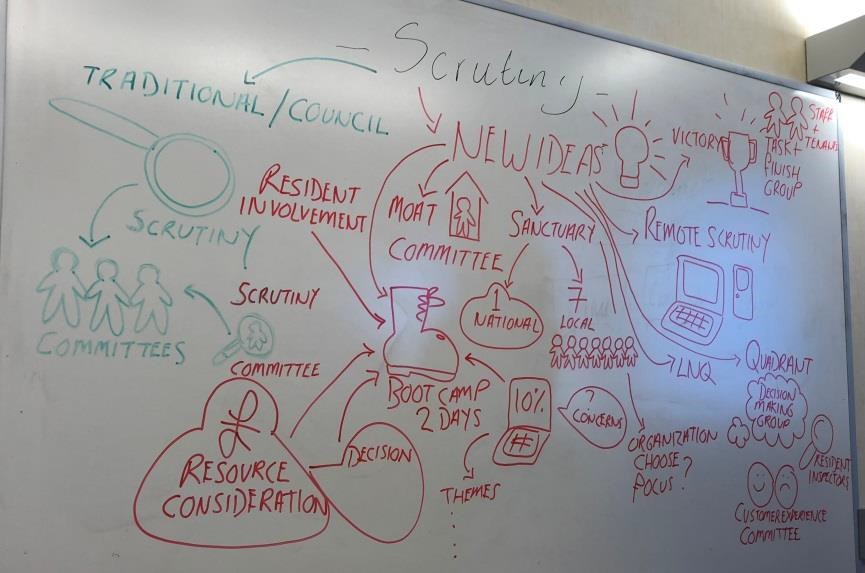 - Scrutiny -
TRADITIONAL/COUNCIL
SCRUTINY
COMMITTEES
SCRUTINY
COMMITTEE
NEW IDEAS
RESIDENT
INVOLVEMENT
MOAT
COMMITTEE
SANCTUARY
1
NATIONAL
7
LOCAL
VICTORY
STAFF
+
TENANTS
TASK+
FINISH
GROUP
REMOTE SCRUTINY
BOOT CAMP
2 DAYS
10%
#
?
CONCERNS
THEMES
£
RESOURCE
CONSIDERATION
DECISION
ORGANIZATION
CHOOSE
FOCUS?
LNQ
QUADRANT
DECISION
MAKING
GROUP
RESIDENT
INSPECTORS
CUSTOMER EXPERIENCE
COMMITTEE